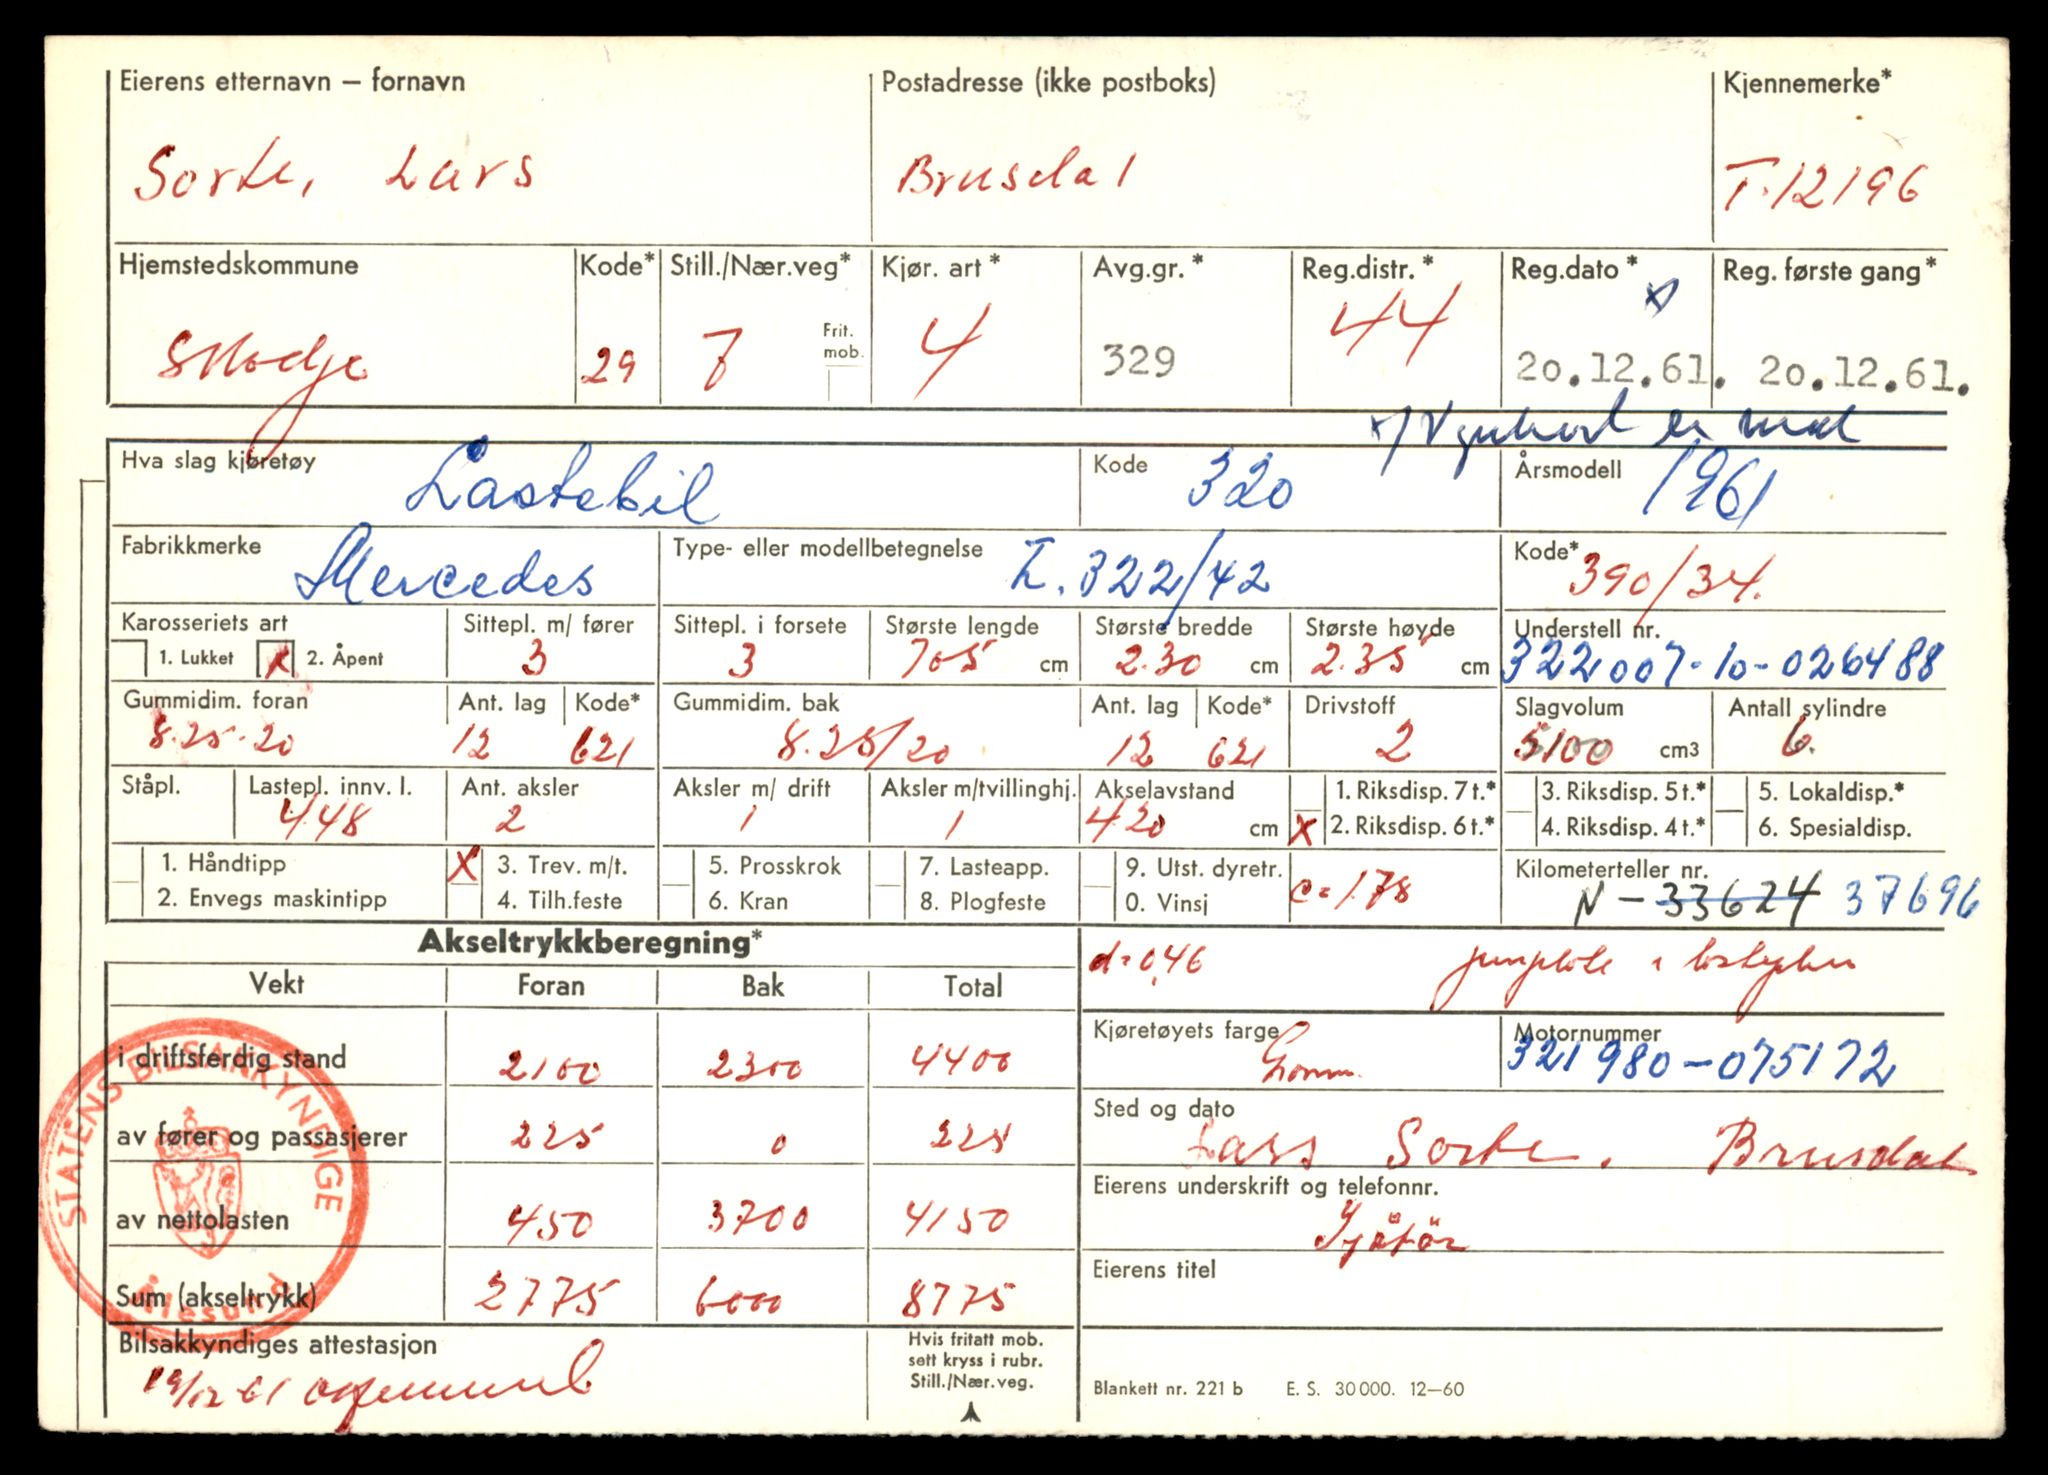 Eierens etternavn — fornavn Postadresse (ikke postboks) Kjennemerke*
Sorte, Lars Brusdal T-12196
Hjemstedskommune Kode* Still./Nær.veg* Kjør. art* Avg.gr.* Reg.distr.* Reg.dato* Reg. første gang*
Skodje 29 7 Frit. mob. 4 329 44 20.12.61. 20.12.61.
x) Vognkort er
Hva slag kjøretøy Lastebil Kode 320 Årsmodell 1961
Fabrikkmerke Mercedes Type- eller modellbetegnelse L. 322/42 Kode* 390/34.
Karosseriets art Sittepl. m/ fører Sittepl. i forsete Største lengde Største bredde Største høyde Understell nr.
1. Lukket x 2. Åpent 3 3 705 cm 2.30 cm 2.35 cm 322007-10-026488
Gummidim. foran Ant. lag Kode* Gummidim. bak Ant. lag Kode* Drivstoff Slagvolum Antall sylindre
8.25-20 12 621 8.25/20 12 621 2 5100 cm3 6.
Ståpl. Lastepl. innv. l. Ant. aksler Aksler m/ drift Aksler m/tvillinghj. Akselavstand 1. Riksdisp. 7 t.* 3. Riksdisp. 5 t.* 5. Lokaldisp.*
448 2 1 1 420 cm X 2. Riksdisp. 6 t.* 4. Riksdisp. 4 t.* 6. Spesialdisp.
1. Håndtipp X 3. Trev. m/t. 5. Prosskrok 7. Lasteapp. 9. Utst. dyretr. c=1.78 Kilometerteller nr.
2. Envegs maskintipp 4. Tilh.feste 6. Kran 8. Plogfeste 0. Vinsj N - 33624 37696
Akseltrykkberegning* d=0,46
Vekt Foran Bak Total
i driftsferdig stand 2100 2300 4400 Kjøretøyets farge Motornummer 321980-075172
av fører og passasjerer 225 0 225 Sted og dato
Lars Sorte. Brusdal
av nettolasten 450 3700 4150 Eierens underskrift og telefonnr.
Sjåfør
Sum (akseltrykk) 2775 6000 8775 Eierens titel
STATENS BILSAKKYNDIGE
Ålesund
Bilsakkyndiges attestasjon Hvis fritatt mob. sett kryss i rubr. Still./Nær.veg.
19/12 61
Blankett nr. 221 b E. S. 30 000. 12—60